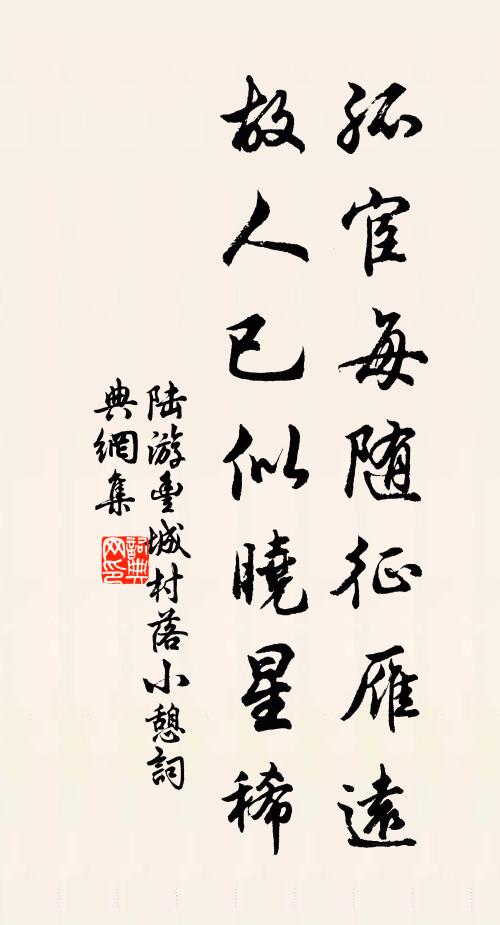 孤宦每随征雁遠
故人已似曉星稀
陆游豐城村落小憩詞
典網集
詞典网印